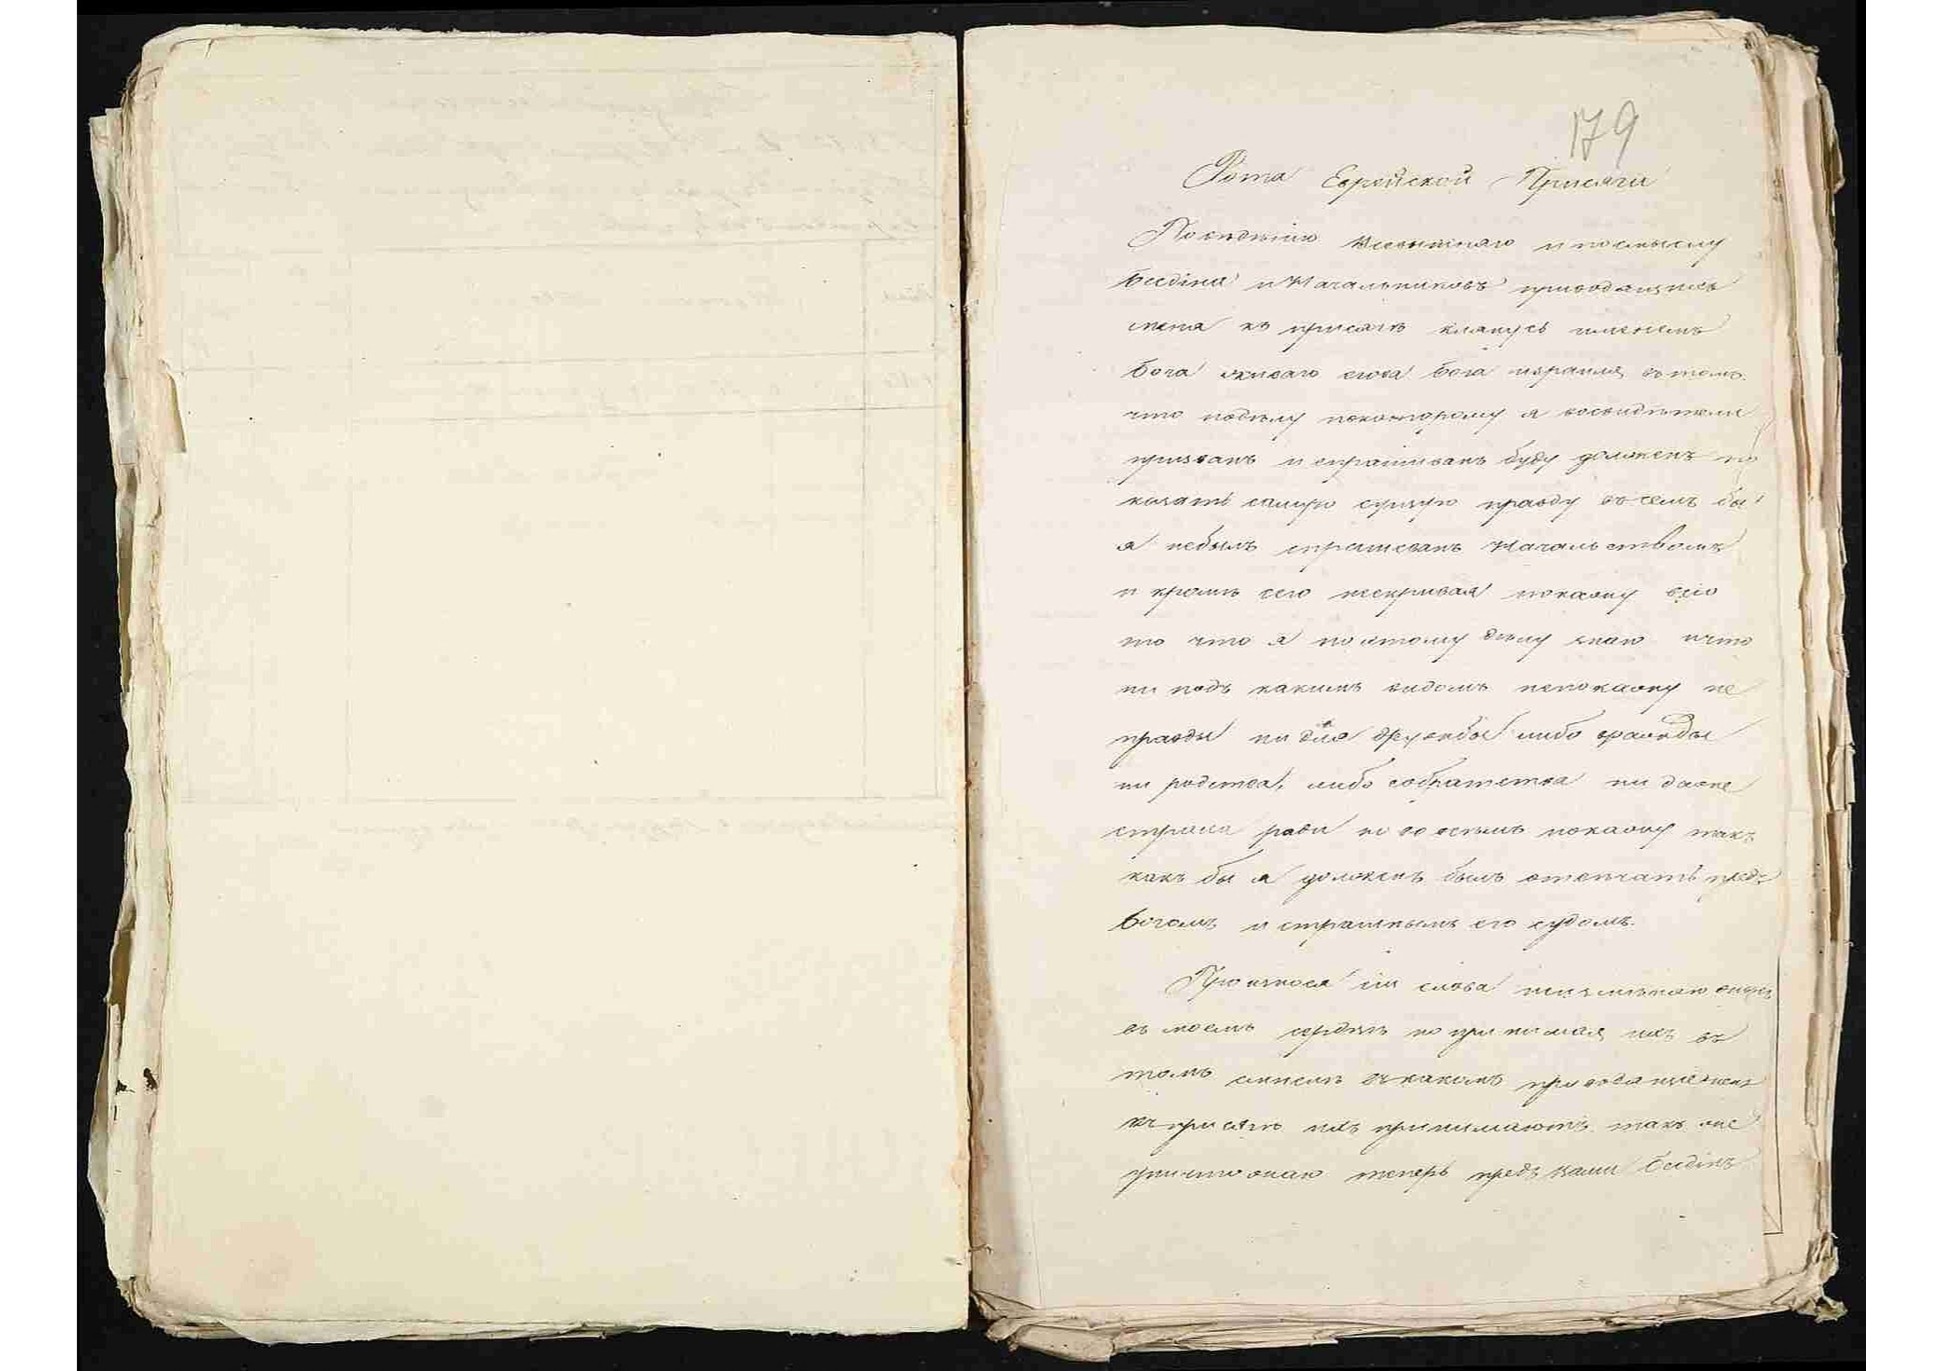 179
Рота Еврейской Присяги
По вѣдѣнію Всевышняго и по смыслу
Бесдина и Начальниковъ приводящихъ
меня къ присягѣ клянусь именемъ
Бога живаго егова Бога израиля въ томъ.
что подѣлу покоторому я восвидѣтели
призванъ и спрашиванъ буду долженъ по
казать самую сущую правду въ чемъ бы
я небылъ спрашеванъ Начальствомъ
и кромѣ сего нескривая покажу всіо
то что я поэтому дѣлу знаю ичто
ни подъ какимъ видомъ непокажу не
правды ни для дружбы либо вражды
ни родства, либо собратства ни даже
страха ради но во всѣмъ покажу такъ
какъ бы я долженъ былъ отвѣчать предъ
Богомъ и страшнымъ его судомъ.
Произнося сіи слова неизмѣняю
въ моемъ сердцѣ но принимая ихъ въ
томъ смыслѣ въ какомъ приводящіе меня
къ присягѣ ихъ принимаютъ. такъ же
уничтожаю теперь предъ вами Бесдинъ